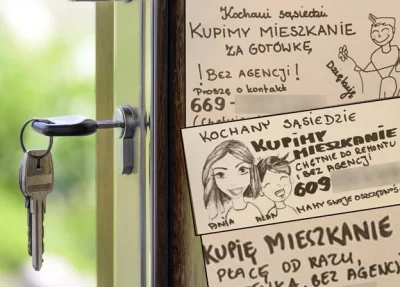 Kochani sąsiedzi
KUPIMY MIESZKANIE
ZA GOTÓWKĘ
! BEZ AGENCJI !
Proszę o kontakt
669-
Dziękuję
KOCHANY SĄSIEDZIE
KUPIMY
MIESZKANIE
CHĘTNIE DO REMONTU
I BEZ AGENCJI
609
MAMY SWOJE OSZCZĘDNOŚCI
KUPIĘ MIESZKANIE
PŁACĘ OD RAZU,
BEZ AGENCJI